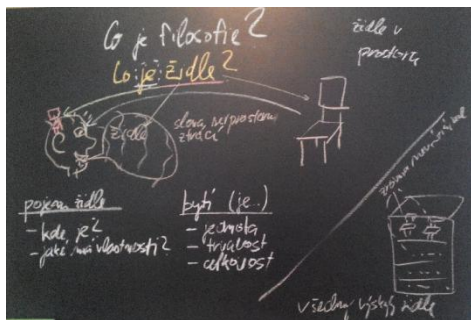 Co je filosofie?
Co je židle?
židle v
prostoru
židle
slova
ztrácí
pojem židle
- kde je?
- jaké má vlastnosti?
bytí (je..)
- jednota
- trvalost
- celkovost
všechny výskyty židle